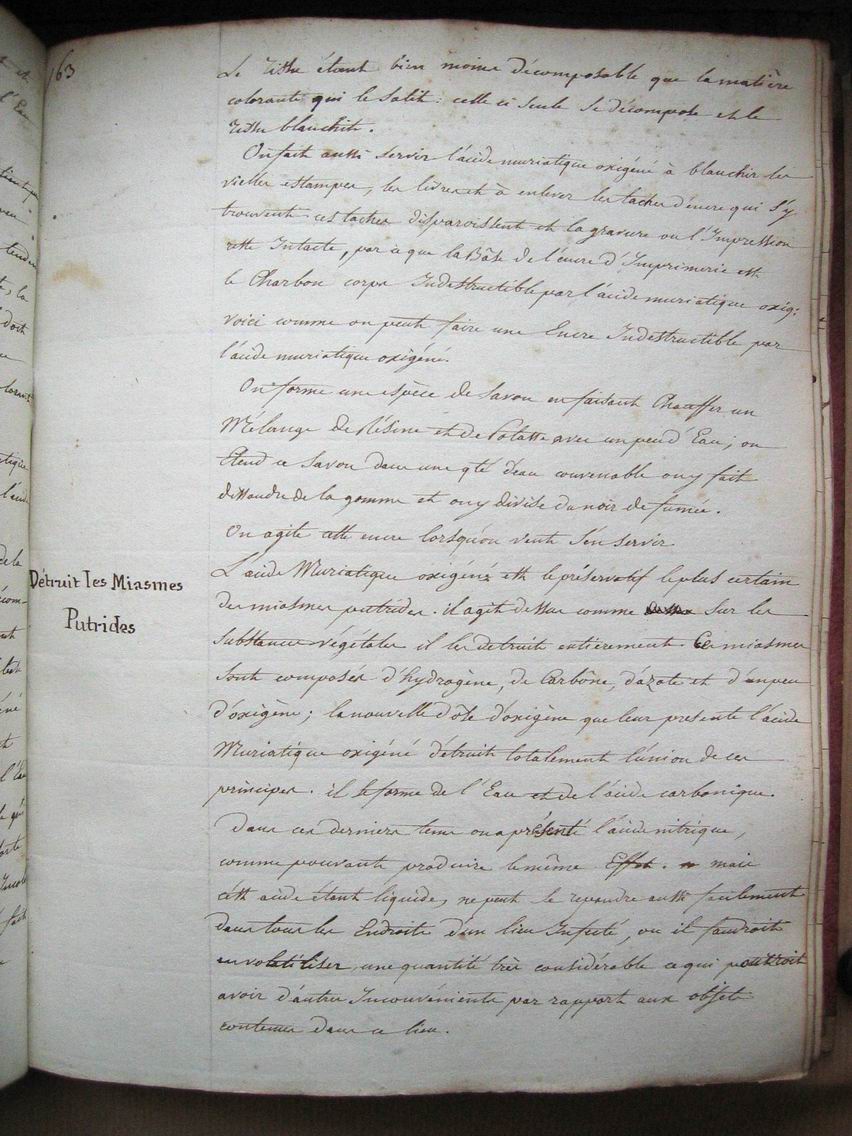 163
Le Tissu étant bien moins décomposable que la matière
colorante qui le salit : celle ci seule se décompose et le
Tissu blanchit.
On fait aussi servir l'acide muriatique oxigéné à blanchir les
vieilles estampes, les livres et à enlever les taches d'encre qui s'y
trouvent ces taches disparoissent et la gravure ou l'Impression
reste Intacte, par ce que la Bâse de l'encre d'Imprimerie est
le Charbon corps Indestructible par l'acide muriatique oxig:
voici comme on peut faire une Encre Indestructible par
l'acide muriatique oxigéné.
On forme une espèce de Savon en faisant Chauffer un
Mélange de Résine et de Potasse avec un peu d'Eau; on
Etend ce Savon dans une qté d'eau convenable on y fait
dissoudre de la gomme et on y divise du noir de fumée.
On agite cette encre lorsqu'on veut s'en servir
Détruit les Miasmes
Putrides
L'acide Muriatique oxigéné est le préservatif le plus certain
des miasmes putrides. il agit dessus comme sur les
substances végétales il les detruit entierement. Ces miasmes
sont composés d'hydrogène, de Carbône, d'azote et d'un peu
d'oxigène; la nouvelle dose d'oxigène que leur presente l'acide
Muriatique oxigéné détruit totalement l'union de ces
principes. il se forme de l'Eau et de l'acide carbonique.
Dans ces derniers tems on a présenté l'acide nitrique,
comme pouvant produire le même Effet. mais
cet acide étant liquide, ne peut se repandre aussi facilement
dans tous les Endroits d'un lieu Infecté, ou il faudroit
en volatiliser une quantité très considérable ce qui pourroit
avoir d'autres Inconvénients par rapport aux objets
contenus dans ce lieu.